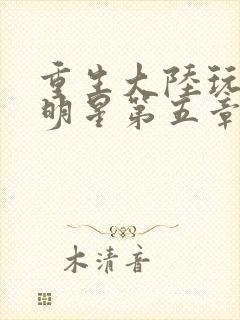 重生大陸玩
明星第五章
木清音